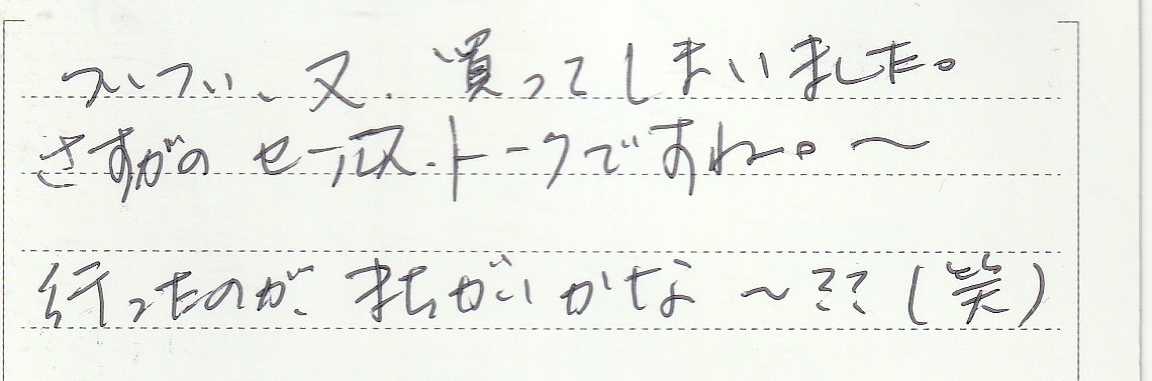 ついつい、又、買ってしまいました。
さすがのセールス・トークですね。〜
行ったのが、まちがいかな〜??(笑)